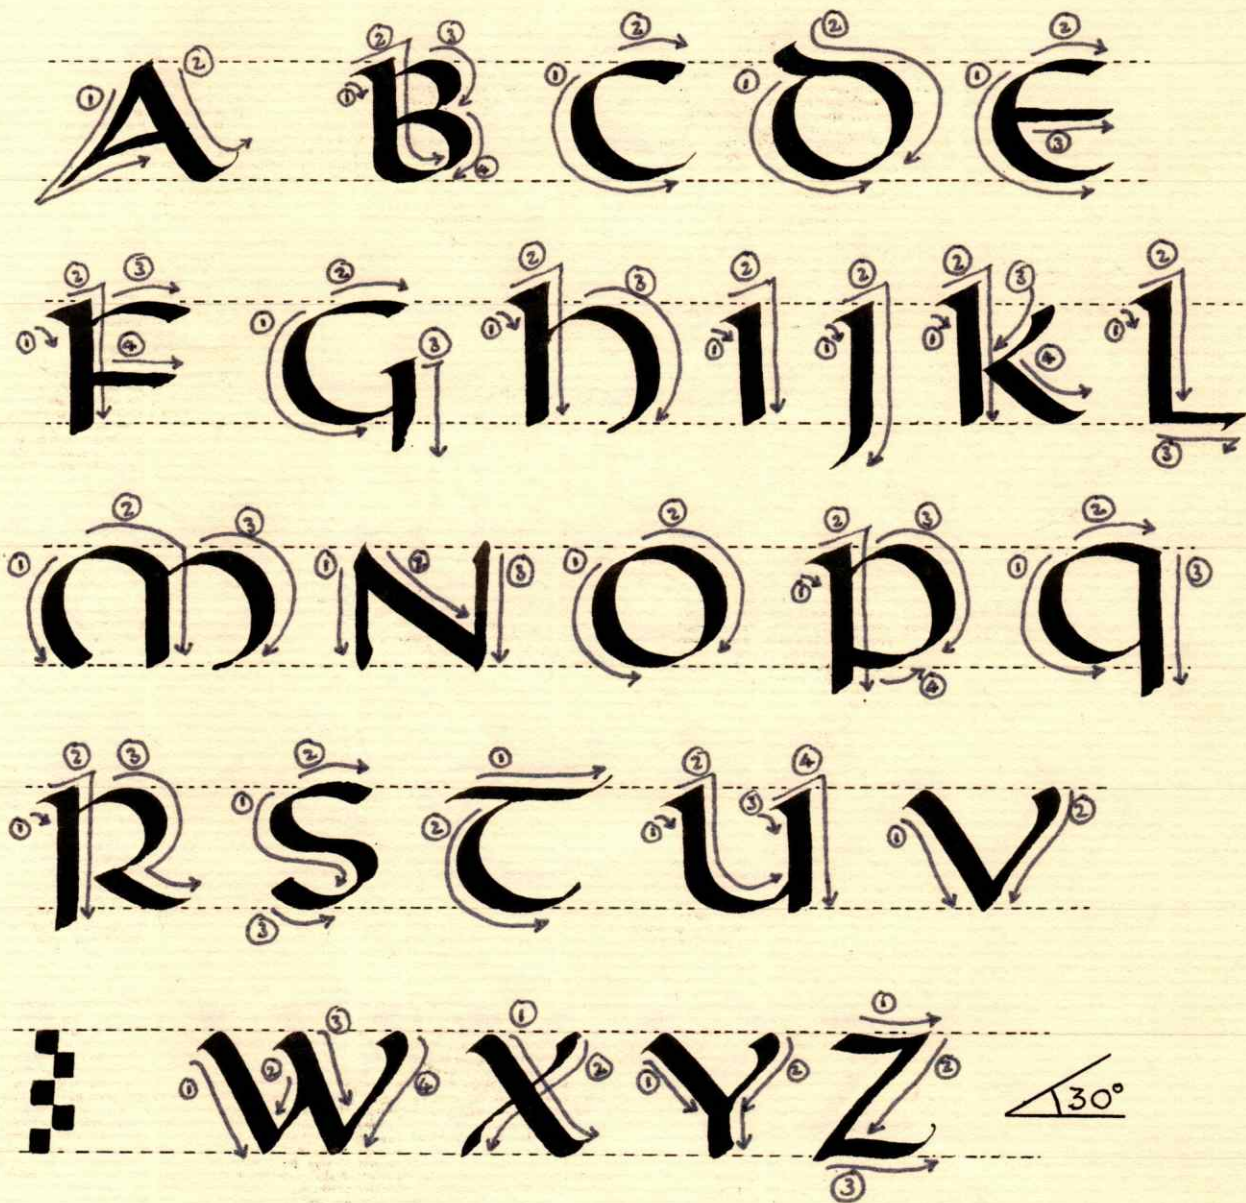 A B C D E
F G H I J K L
M N O P Q
R S T U V
W X Y Z 30°